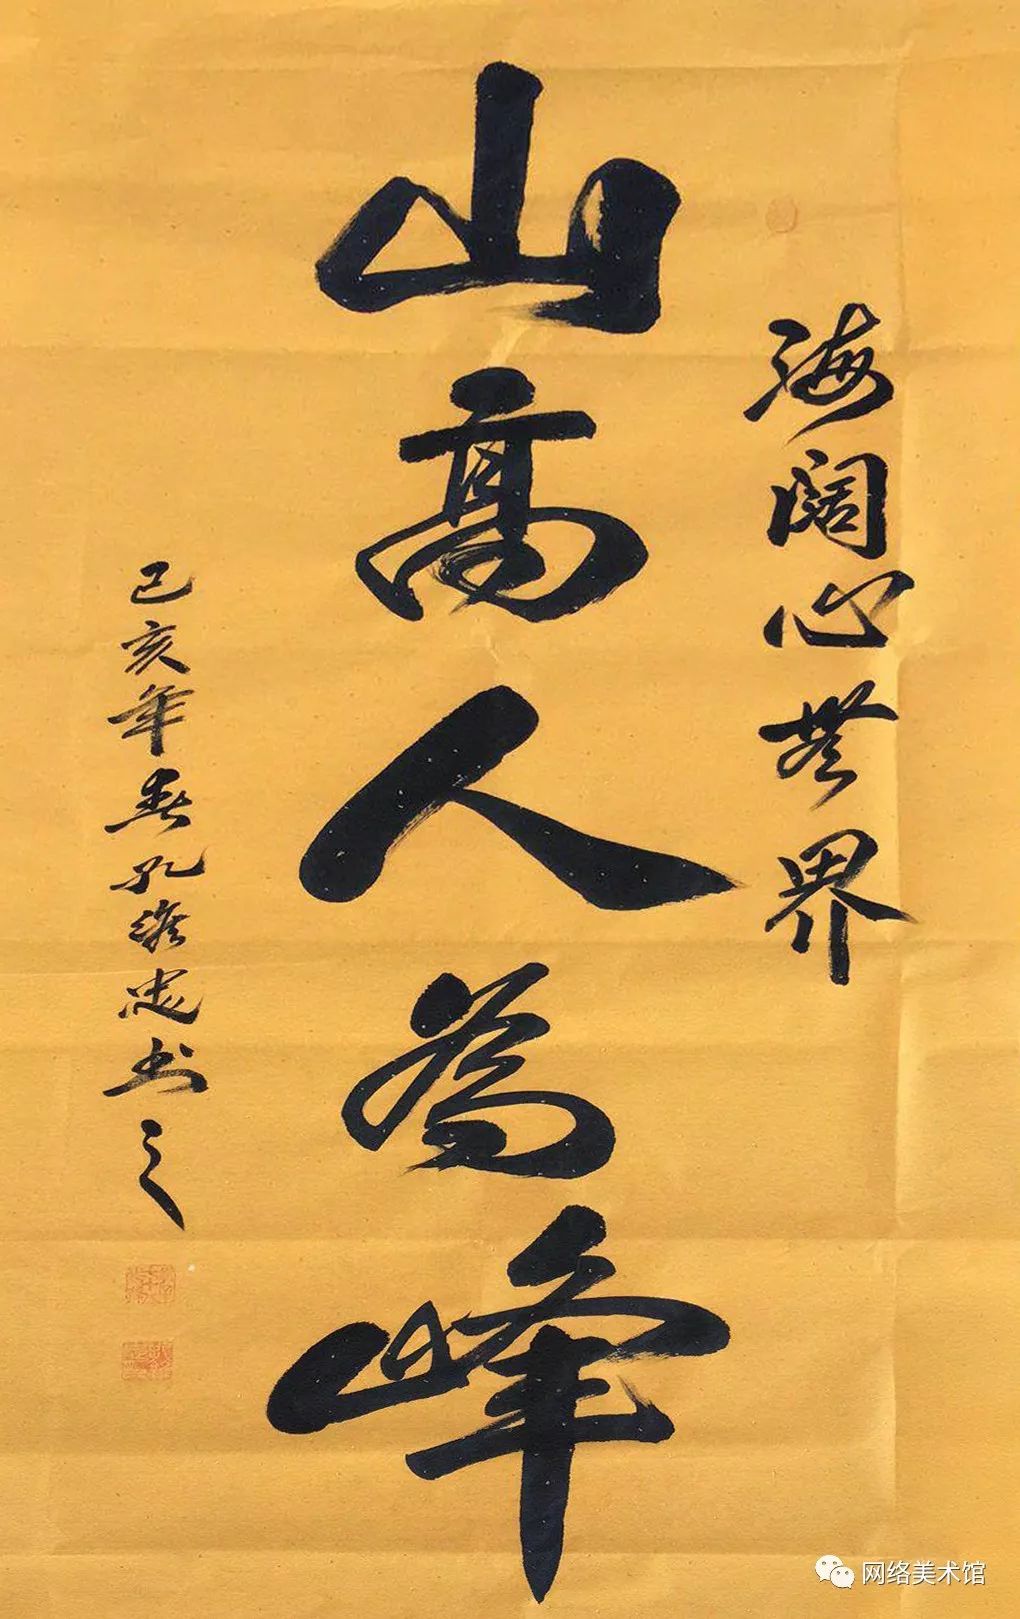 海阔心無界
山高人為峰
己亥年春孔維忠书之
网络美术馆